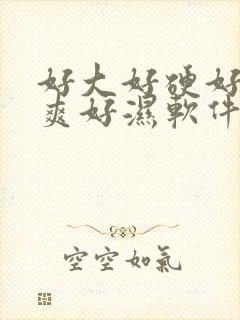 好大好硬好
爽好濕軟件
空空如氣